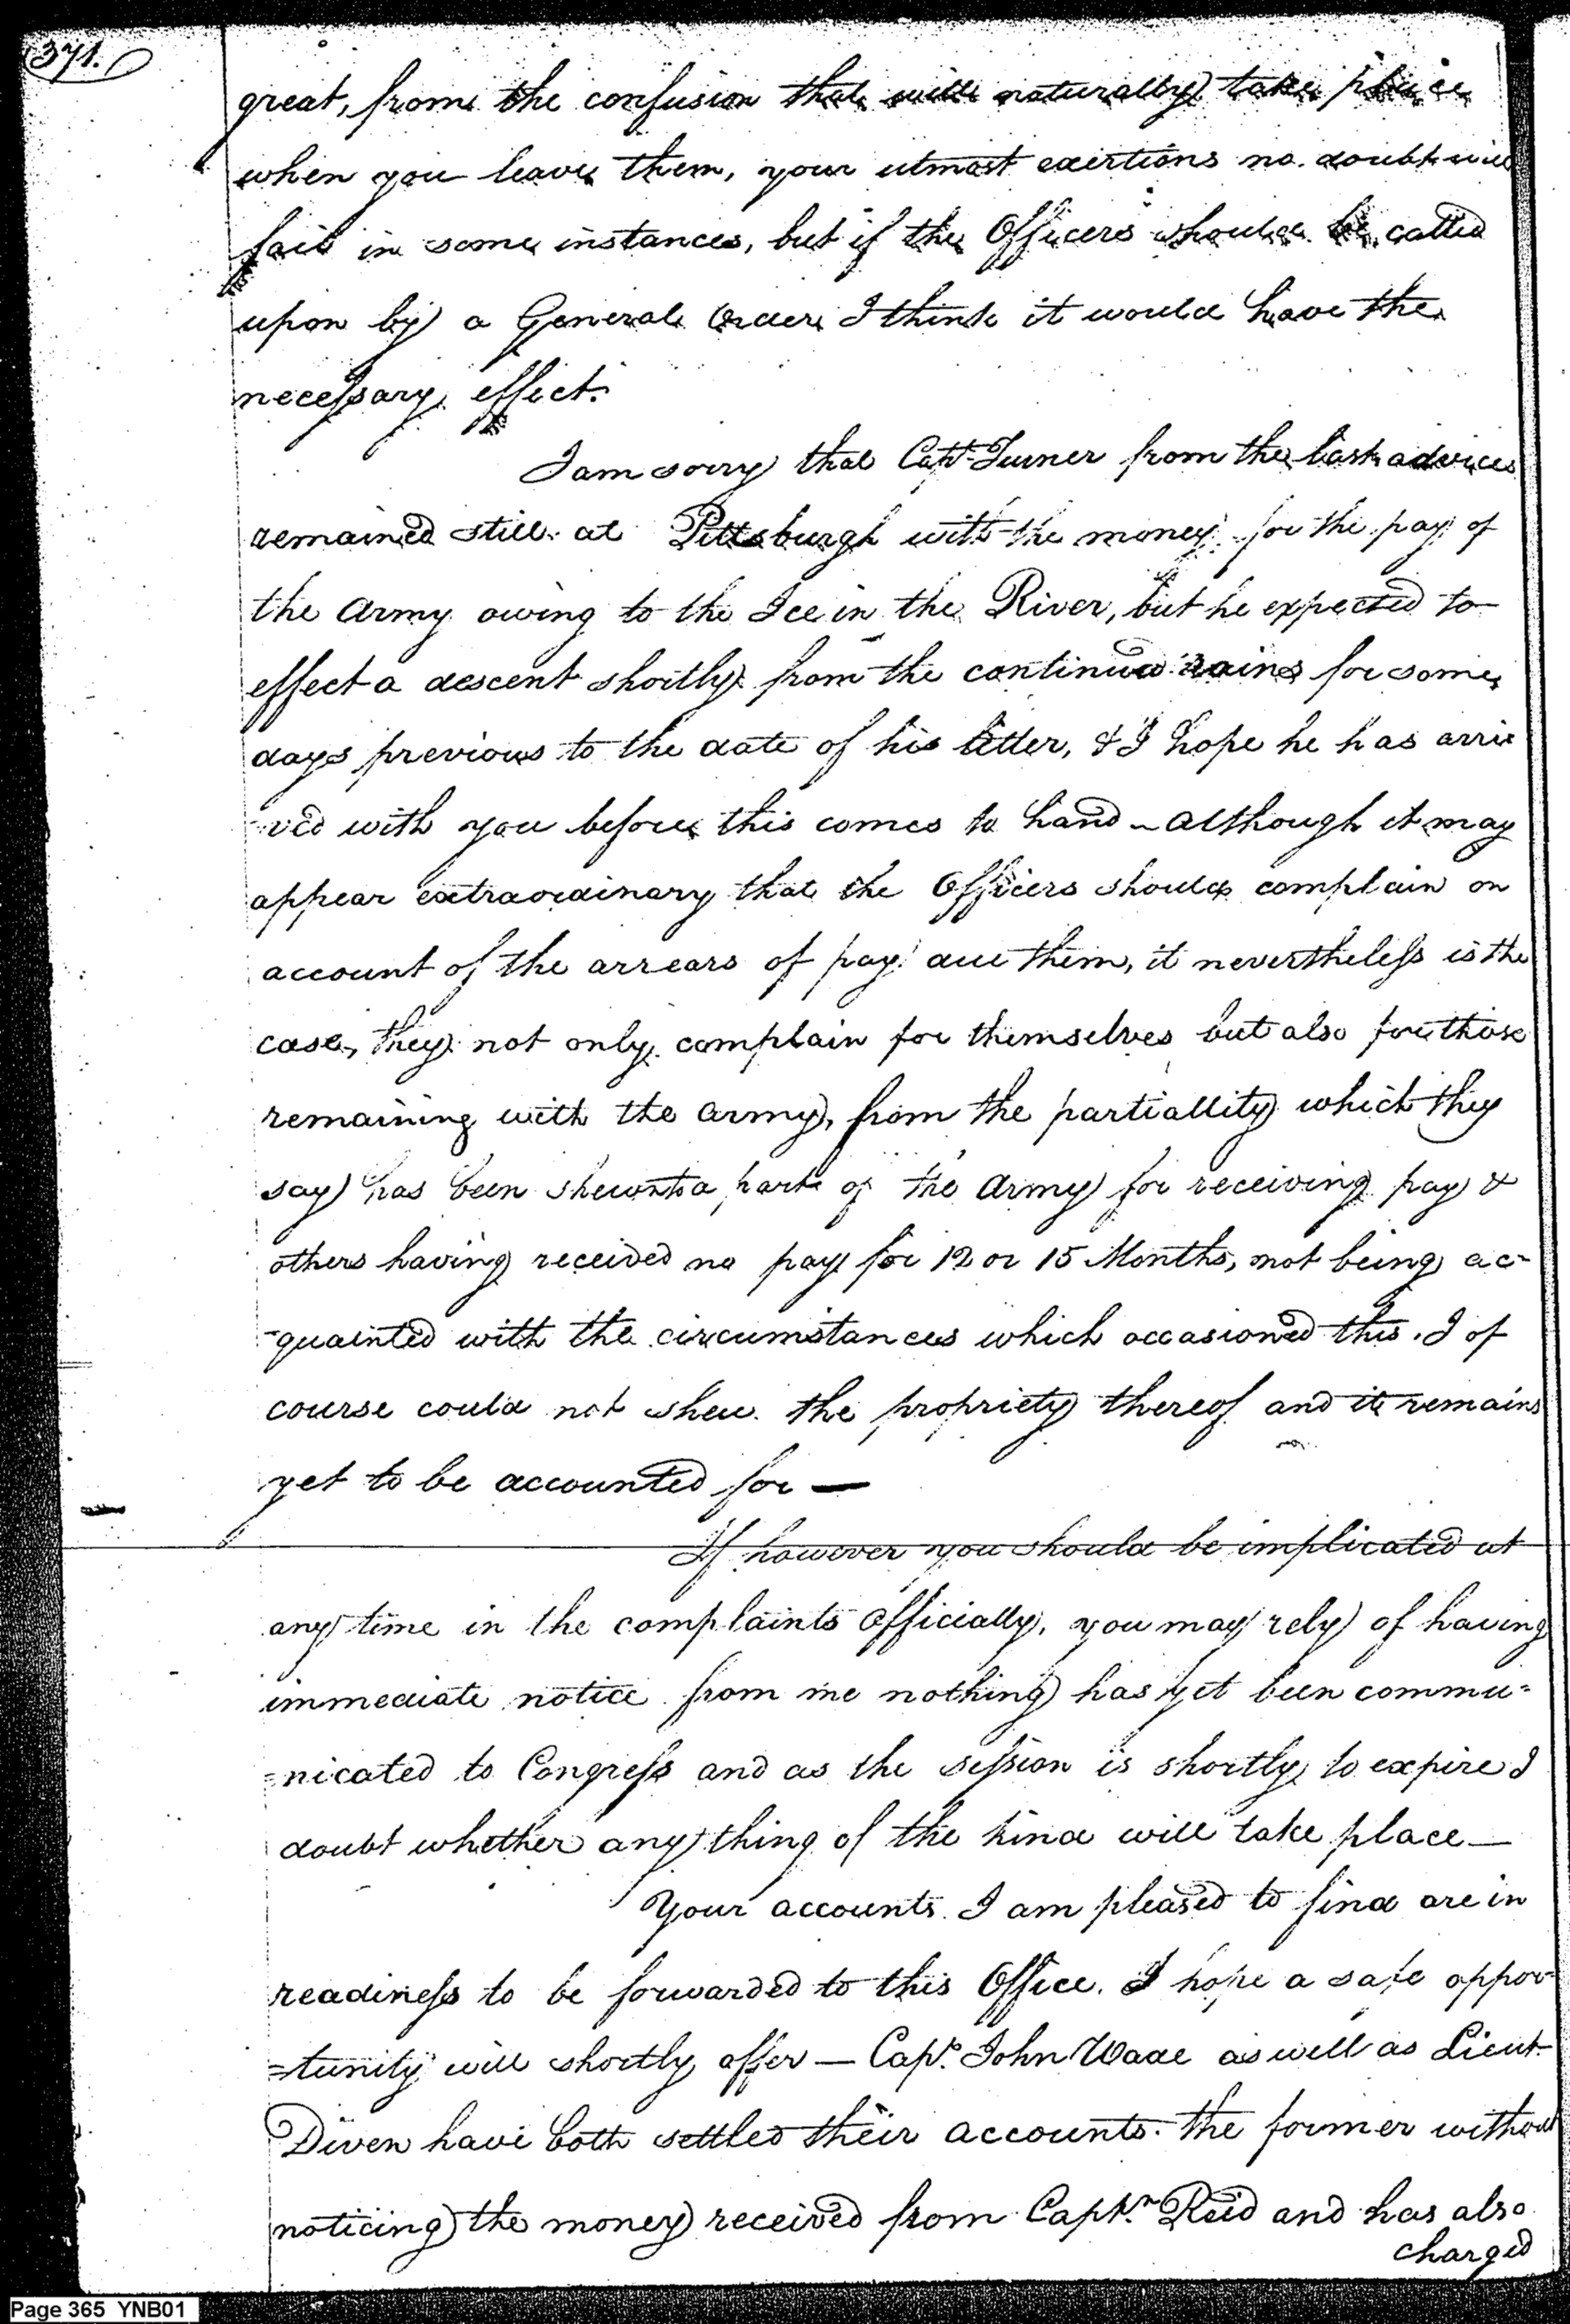 371.
great, from the confusion that will naturally take place
when you leave them, your utmost exertions no doubt will
fail in some instances, but if the Officers should be called
upon by a General Order I think it would have the
necessary effect.
I am sorry that Capt. Turner from the last advices
remained still at Pittsburgh with the money for the pay of
the Army owing to the Ice in the River, but he expected to
effect a descent shortly from the continued rains for some
days previous to the date of his letter, & I hope he has arri
ved with you before this comes to hand - although it may
appear extraordinary that the Officers should complain on
account of the arrears of pay due them, it nevertheless is the
case, they not only complain for themselves but also for those
remaining with the Army, from the partiallity which they
say has been shewn to a part of the Army for receiving pay &
others having received no pay for 12 or 15 Months, not being ac-
-quainted with the circumstances which occasioned this. I of
course could not shew the propriety thereof and it remains
yet to be accounted for —
If however you should be implicated at
any time in the complaints Officially, you may rely of having
immediate notice from me nothing has yet been commu=
=nicated to Congress and as the session is shortly to expire I
doubt whether any thing of the kind will take place —
Your accounts I am pleased to find are in
readiness to be forwarded to this Office. I hope a safe oppor-
=tunity will shortly offer — Capt. John Wade as well as Lieut.
Diven have both settled their accounts. the former without
noticing the money received from Capt. Reid and has also
charged
Page 365 YNB01